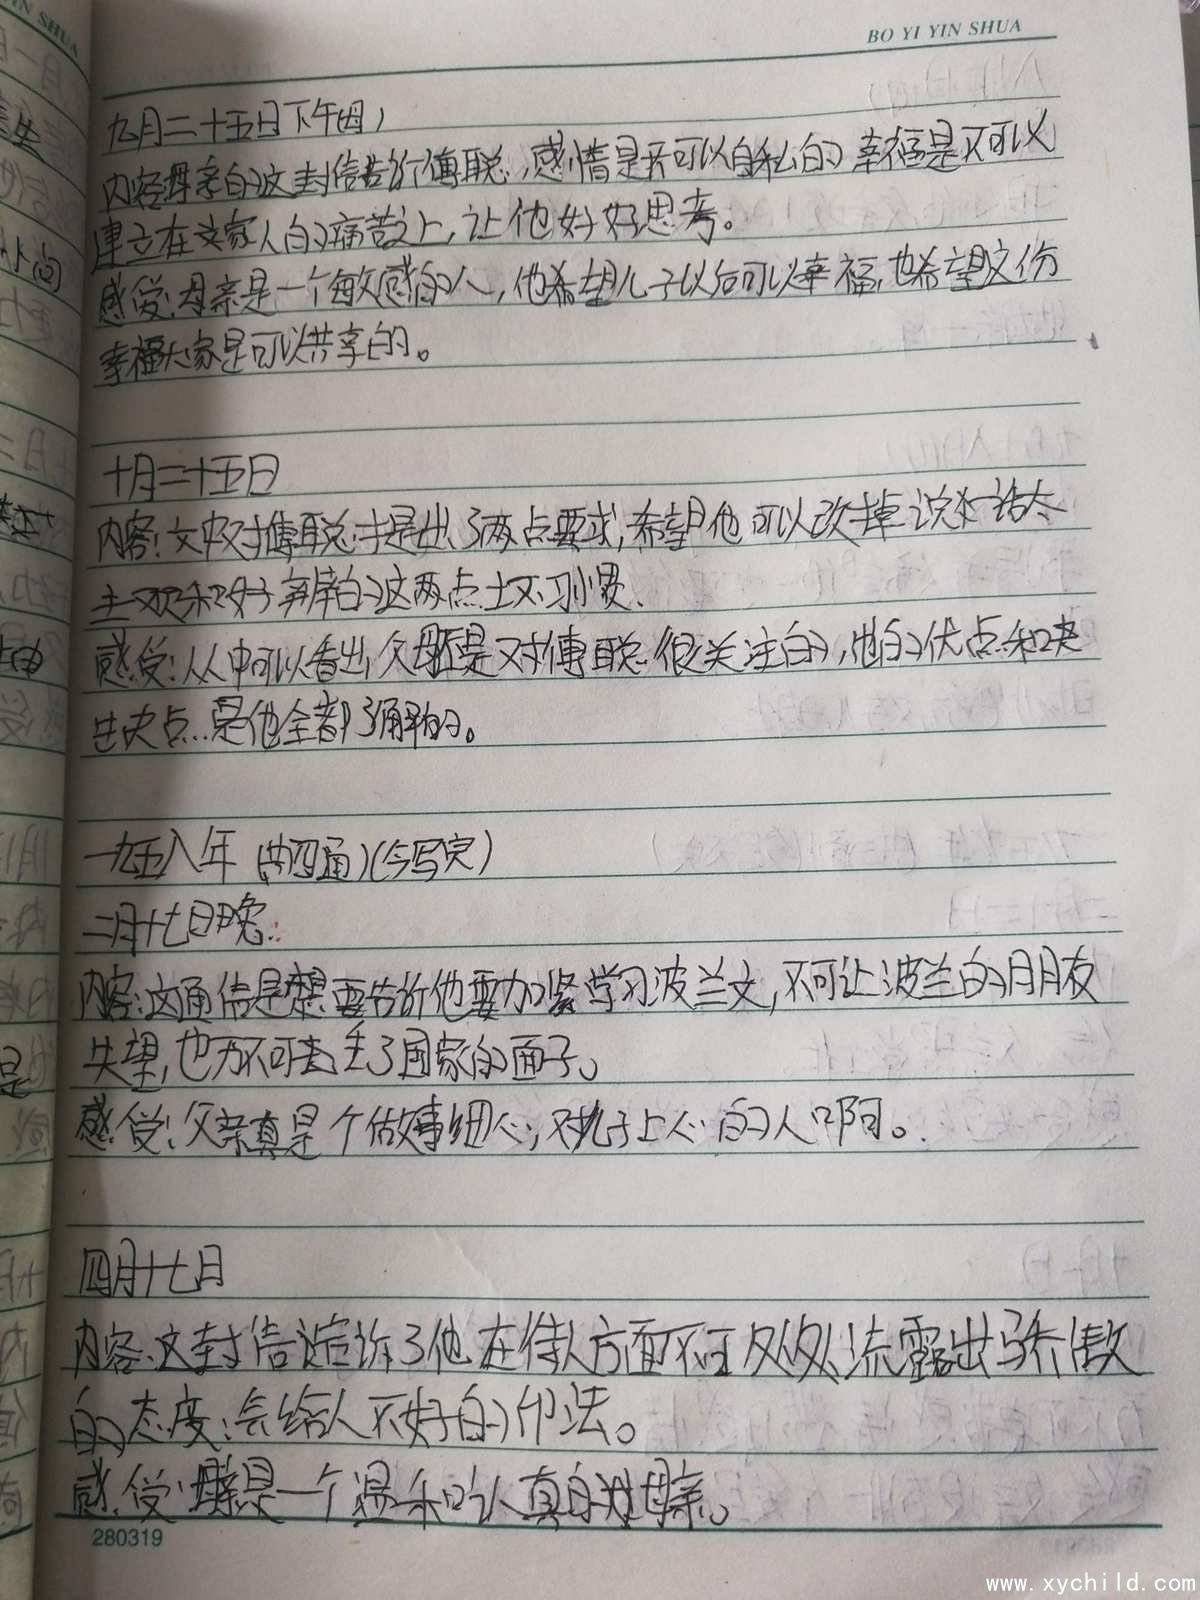 BO YI YIN SHUA
九月二十五日下午(母)
内容:母亲的这封信告诉傅聪,感情是不可以自私的幸福是不可以
建立在家人的痛苦之上,让他好好思考。
感受:母亲是一个敏感的人,他希望儿子以后可以幸福,也希望这份
幸福大家是可以共享的。
十月二十五日
内容:文中对傅聪提出了两点要求,希望他可以改掉说话太
主观和好辩的这两点坏习惯.
感受:从中可以看出,父母还是对傅聪很关注的,他的优点和
缺点是他全部了解的。
一九五八年(共四通)(今写完)
二月十七日晚
内容:这通信是想要告诉他要加紧学习波兰文,不可让波兰的朋友
失望,也不可丢了国家的面子。
感受:父亲真是个做事细心,对儿子上心的人啊。
四月十七日
内容:这封信告诉了他在待人方面不要处处流露出骄傲
的态度;会给人不好的印法。
感受:母亲是一个温和认真的母亲。
280319
www.xychild.com